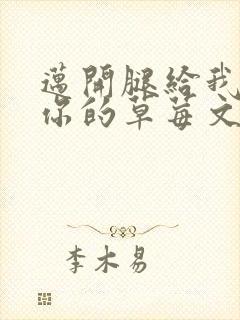 邁開腿給我
你的草莓文
李木易